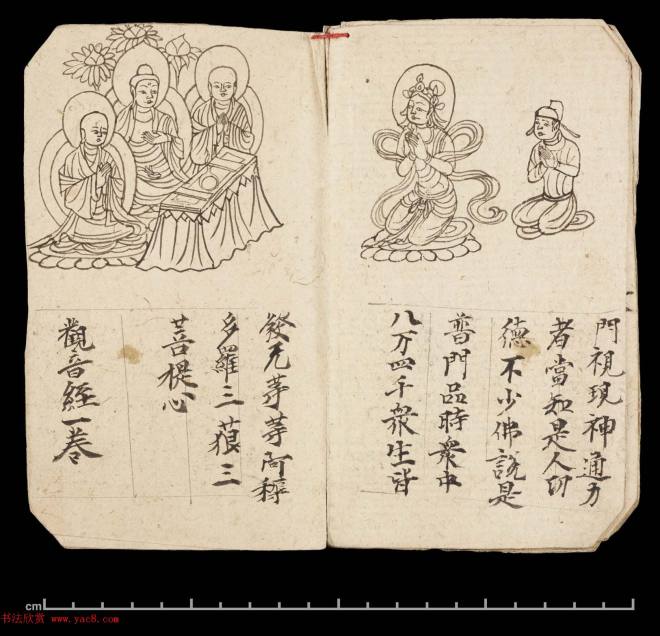 門視現神通力
者當知是人功
德不少佛說是
普門品時衆中
八万四千衆生皆
發无等等阿耨
多羅三藐三
菩提心
觀音經一卷
cm
书法欣赏 www.yac8.com